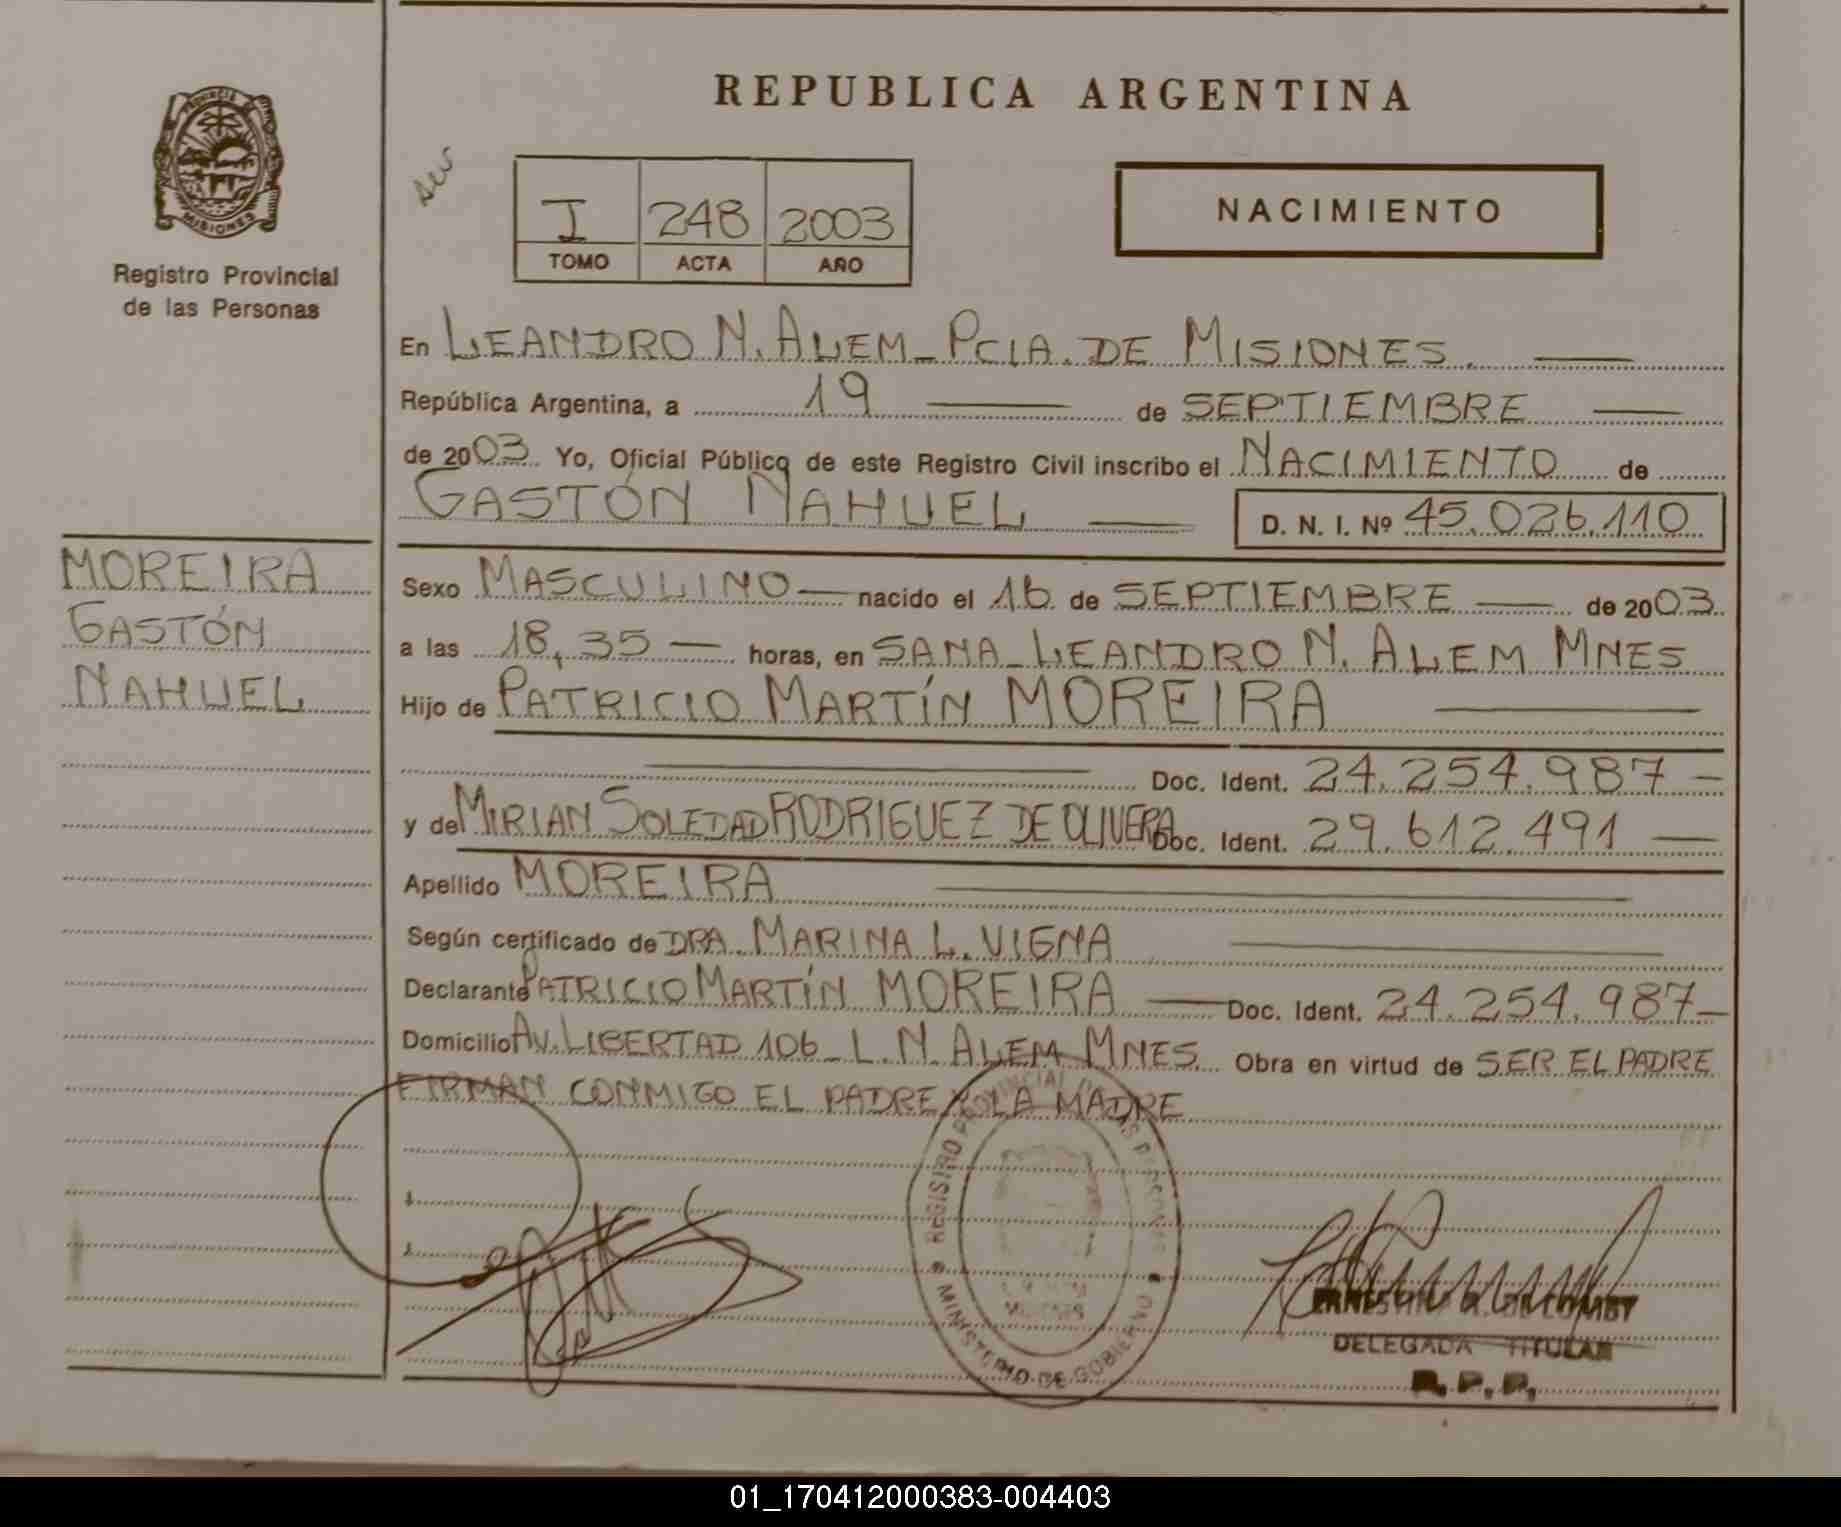 REPUBLICA ARGENTINA
PROVINCIA
MISIONES
Registro Provincial
de las Personas
I 248 2003
TOMO ACTA AÑO
NACIMIENTO
En LEANDRO N. ALEM - PCIA. DE MISIONES.
República Argentina, a 19 de SEPTIEMBRE
de 2003 Yo, Oficial Público de este Registro Civil inscribo el NACIMIENTO de
GASTÓN NAHUEL D. N. I. Nº 45.026.110
MOREIRA
GASTÓN
NAHUEL
Sexo MASCULINO nacido el 16 de SEPTIEMBRE de 2003
a las 18,35 horas, en SANA - LEANDRO N. ALEM MNES
Hijo de PATRICIO MARTÍN MOREIRA
Doc. Ident. 24.254.987
y de MIRIAN SOLEDAD RODRIGUEZ DE OLIVERA Doc. Ident. 29.612.491
Apellido MOREIRA
Según certificado de DRA. MARINA L. VIGNA
Declarante PATRICIO MARTÍN MOREIRA Doc. Ident. 24.254.987
Domicilio AV. LIBERTAD 106 - L. N. ALEM MNES. Obra en virtud de SER EL PADRE
FIRMAN CONMIGO EL PADRE Y LA MADRE
REGISTRO PROVINCIAL DE LAS PERSONAS
MINISTERIO DE GOBIERNO
DELEGADA TITULAR
R. P. P.
01_170412000383-004403